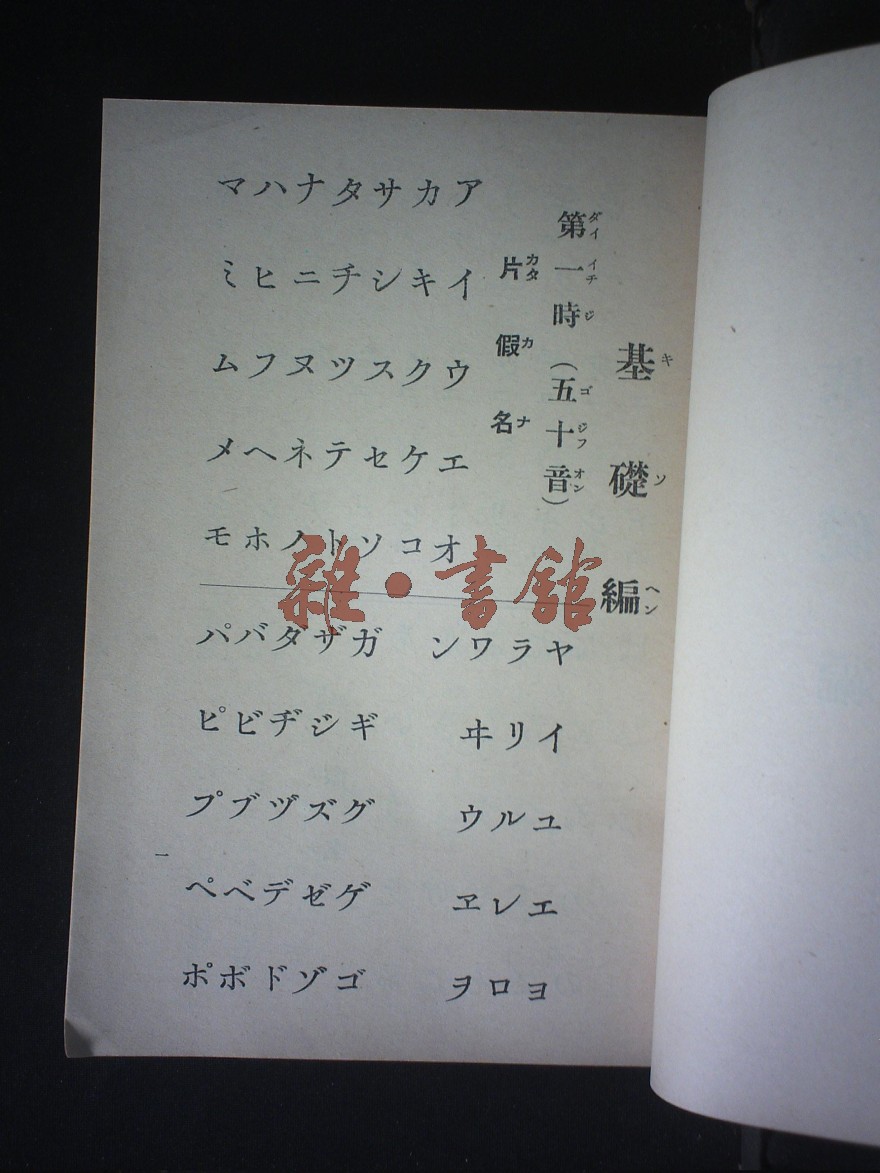 基礎編
キソヘン
第一時(五十音)
ダイイチジゴジフオン
片假名
カタカナ
アイウエオ
カキクケコ
サシスセソ
タチツテト
ナニヌネノ
ハヒフヘホ
マミムメモ
ヤイユエヨ
ラリルレロ
ワヰウヱヲ
ン
ガギグゲゴ
ザジズゼゾ
ダヂヅデド
バビブベボ
パピプペポ
一
雜·書館